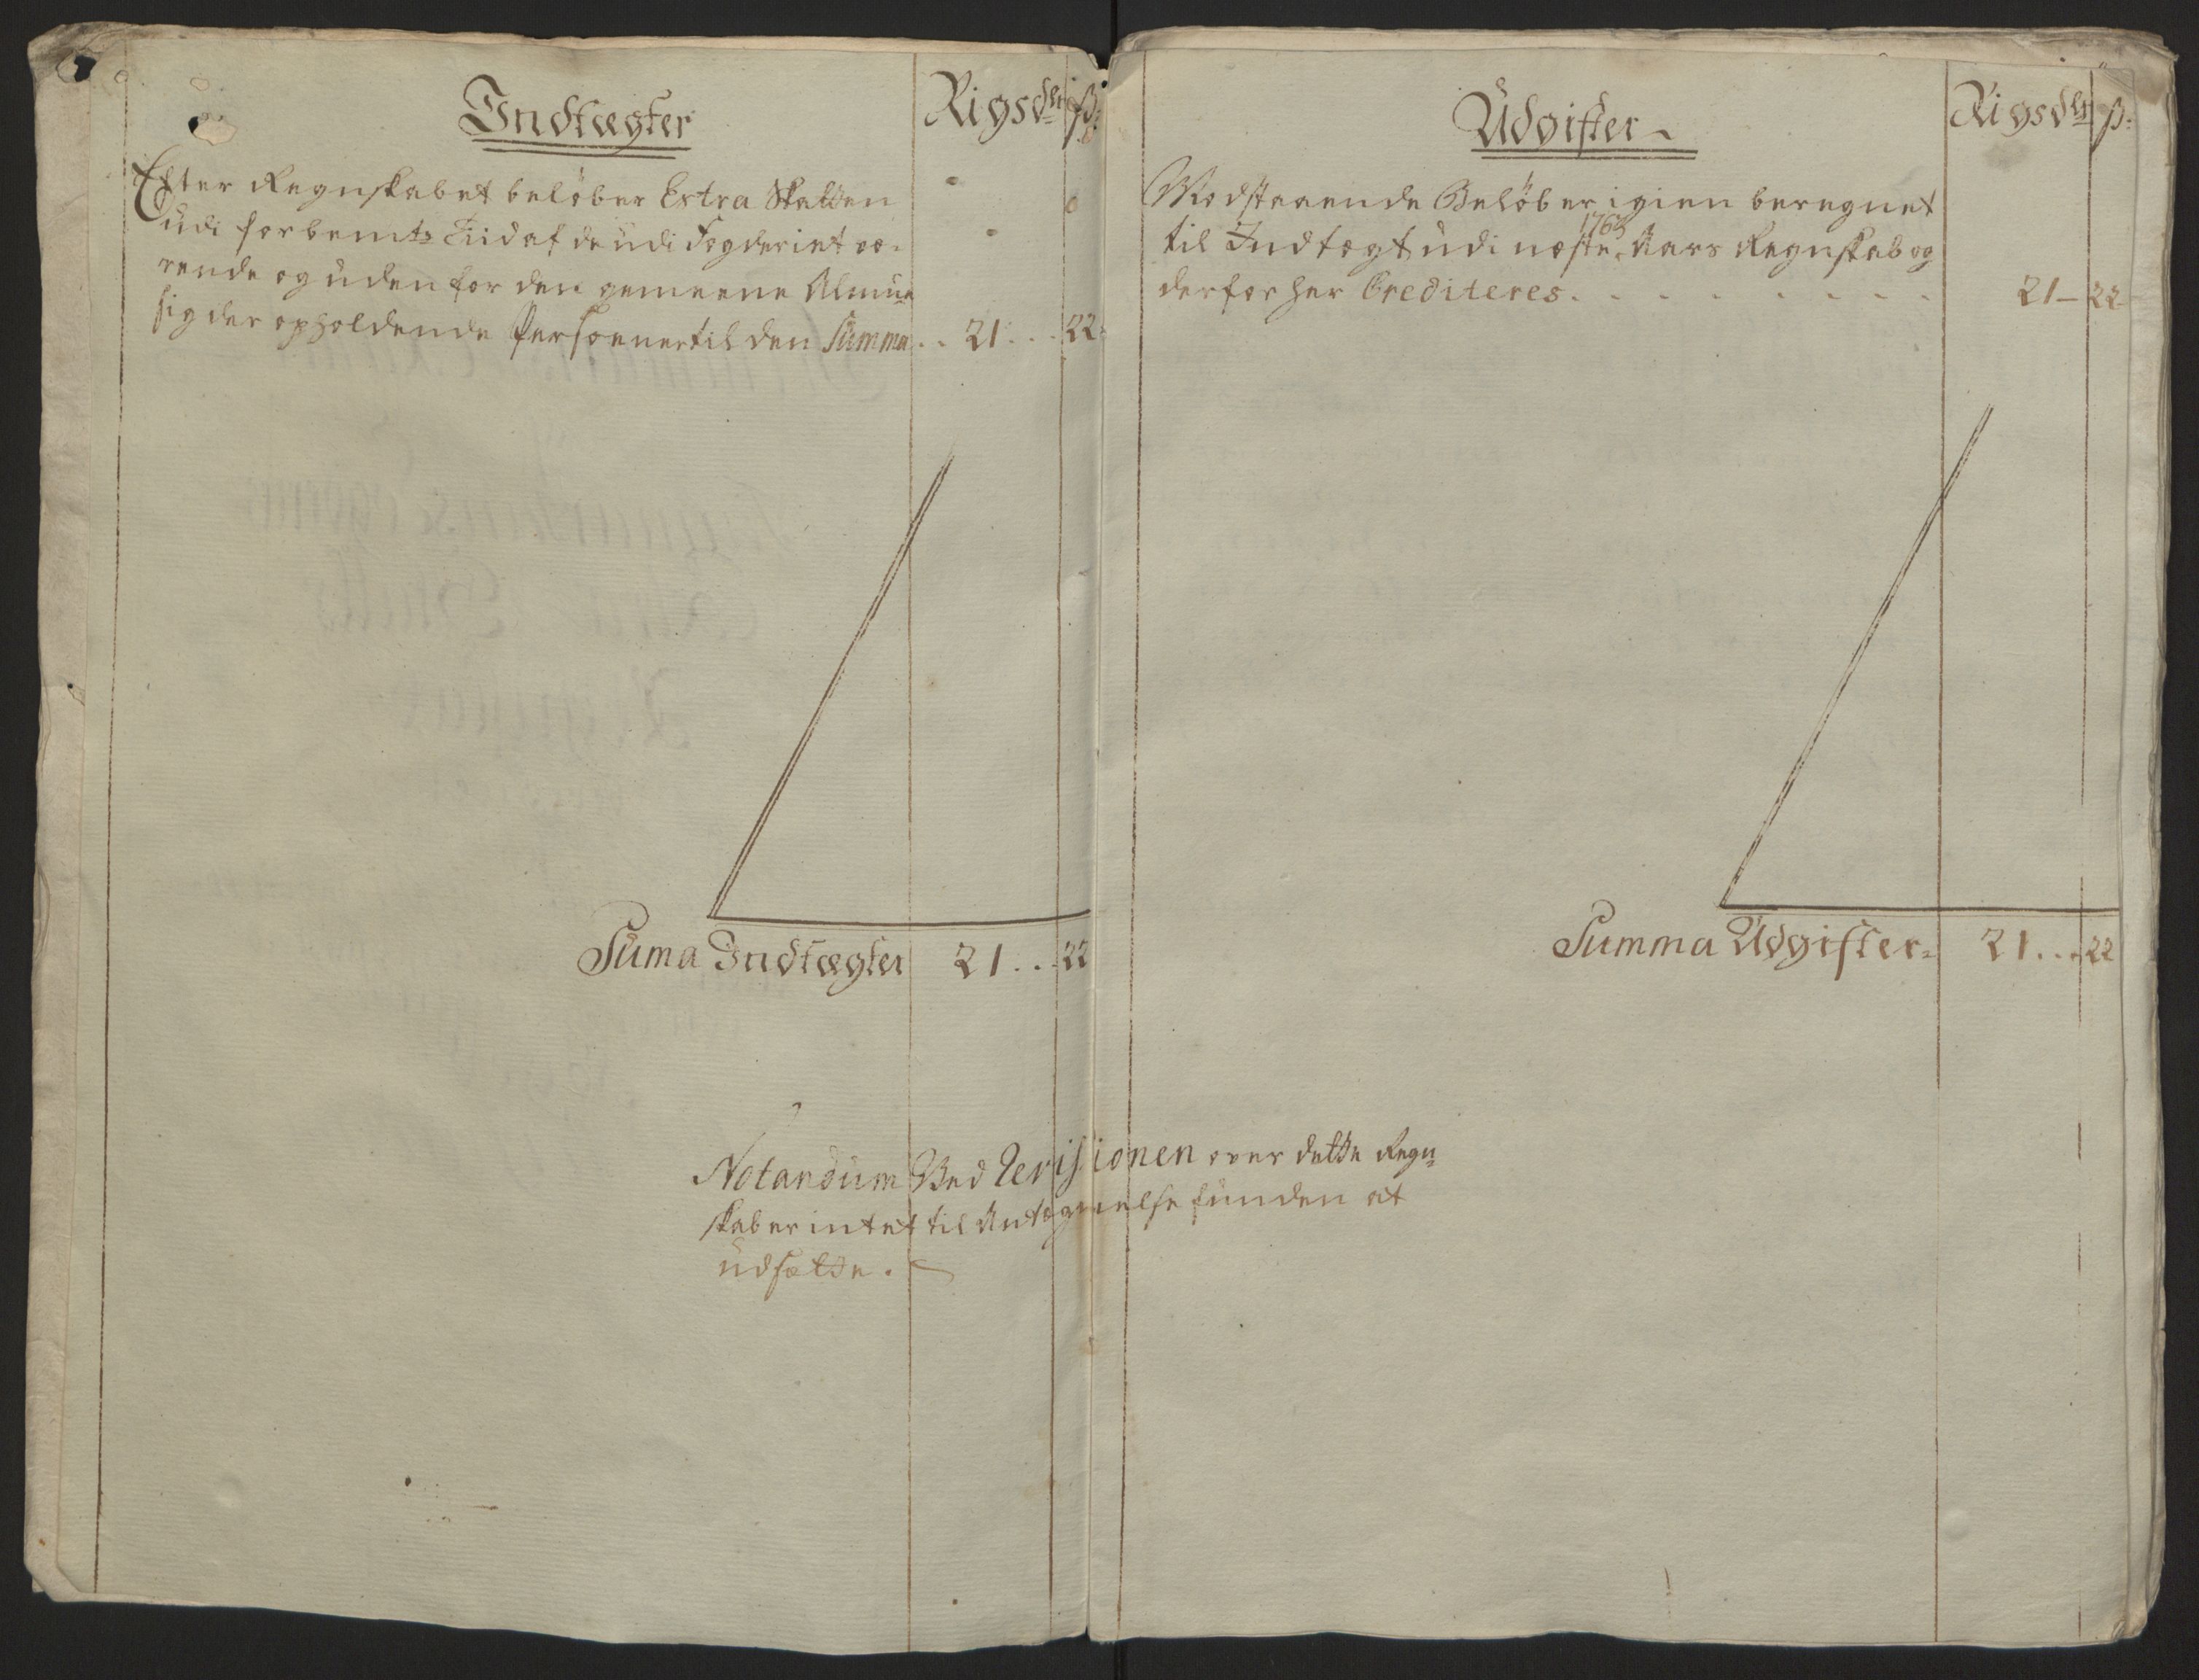 Indtægter
Rigsdlr
ß:
Efter Regnskabet beløber Extra Skatten
udi forbemte Tiid af de udi Fogderiet væ-
rende og uden for den gemeene Almue
sig der opholdende Personer til den Summa . . 21 . . . 22
Suma Indtægter 21 . . . 22
Udgifter
Rigsdlr
ß:
Modstaaende Beløb er igien beregnet
1763
til Indtægt udi næste Aars Regnskab og
derfor her Crediteres . . . . . . . . . 21 – 22
Summa Udgifter 21 . . . 22
Notandum Ved Revisionen over dette Regn-
skab er intet til Antegnelse funden at
udsætte.